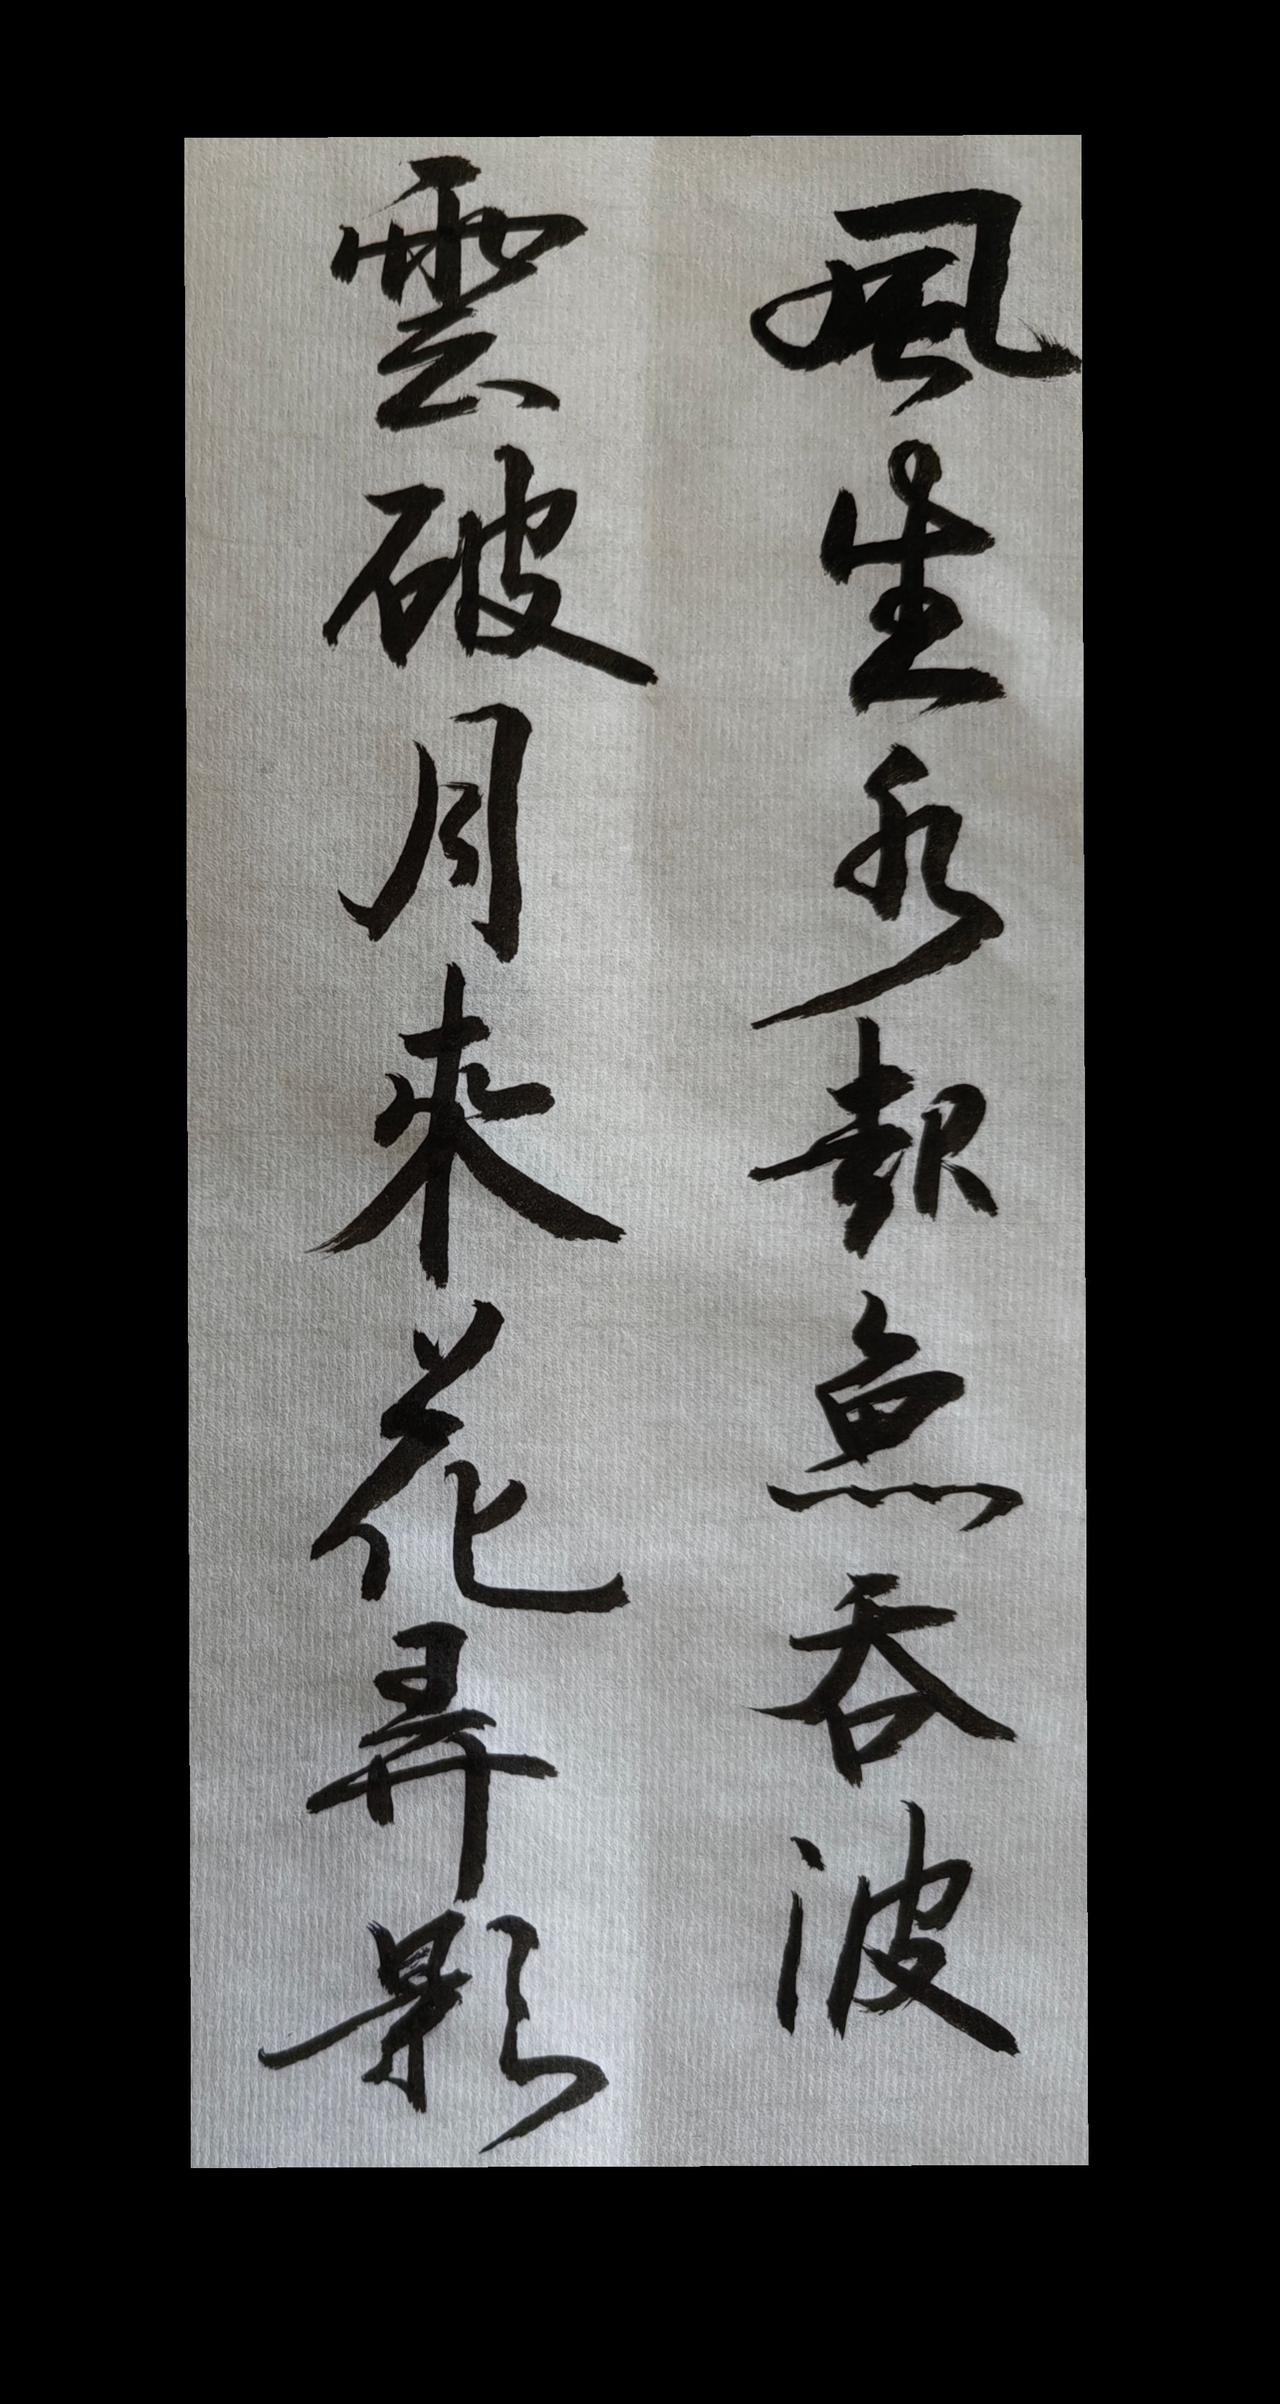 風生水起魚吞波
雲破月來花弄影